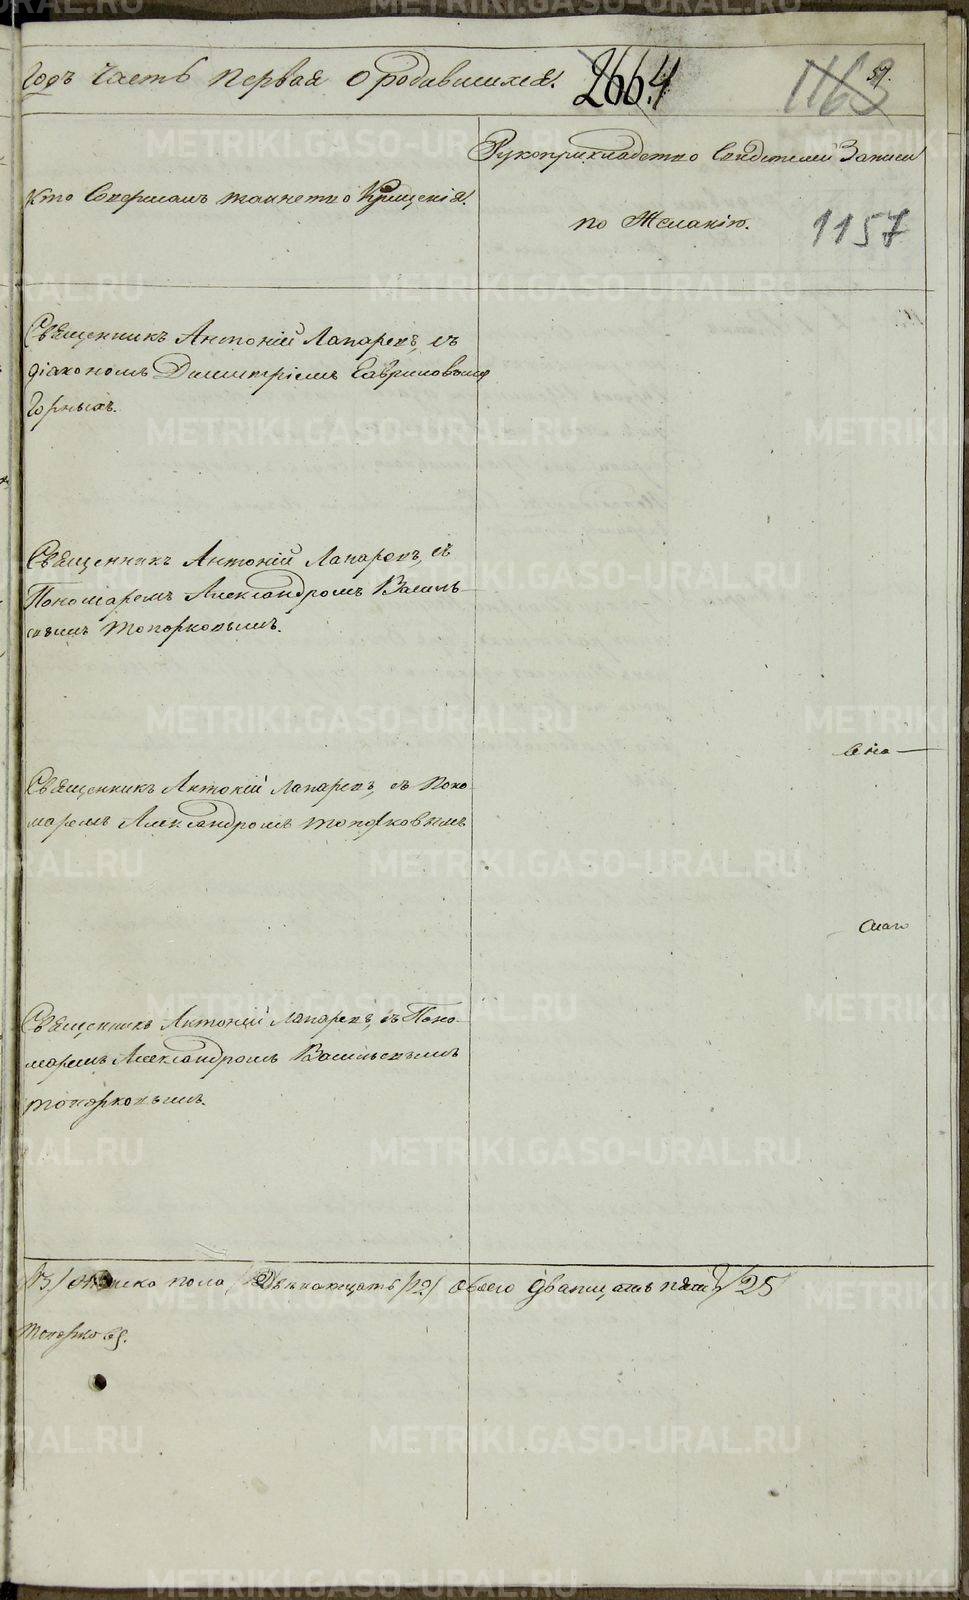 Годъ часть первая о родившихся. 2664 1163 59.
Рукоприкладство Свидетелей Записи
Кто Совершалъ таинство Крещенія.
по Желанію. 1157
Священникъ Антоній Лапаревъ, съ
діакономъ Димитріемъ Гавриловымъ
Горныхъ.
Священникъ Антоній Лапаревъ, съ
Пономаремъ Александромъ Василь-
евымъ Топорковымъ.
Священникъ Антоній Лапаревъ, съ Поно-
маремъ Александромъ Топорковымъ
Священникъ Антоній Лапаревъ, съ Поно-
маремъ Александромъ Васильевымъ
Топорковымъ.
/13/ женска пола, двенатцать /12/ обоего дватцать пять /25
Топорковъ.
METRIKI.GASO-URAL.RU